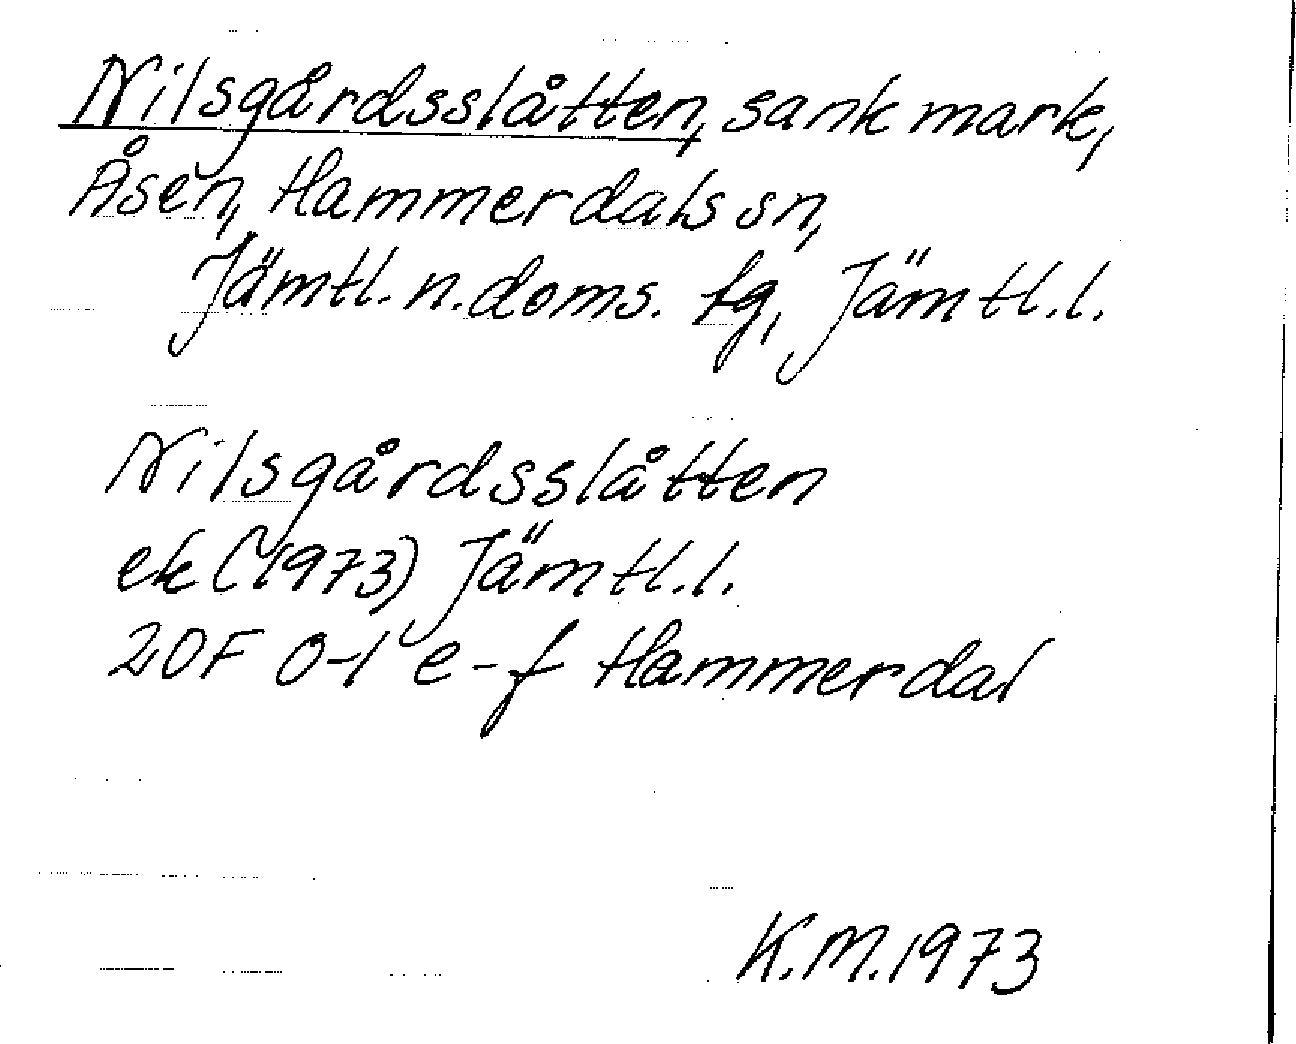 Nilsgårdsslåtten, sank mark,
Åsen, Hammerdals sn,
Jämtl. n. doms. tg, Jämtl.l.
Nilsgårdsslåtten
ek (1973) Jämtl.l.
20F 0-1 e-f Hammerdal
K.M.1973